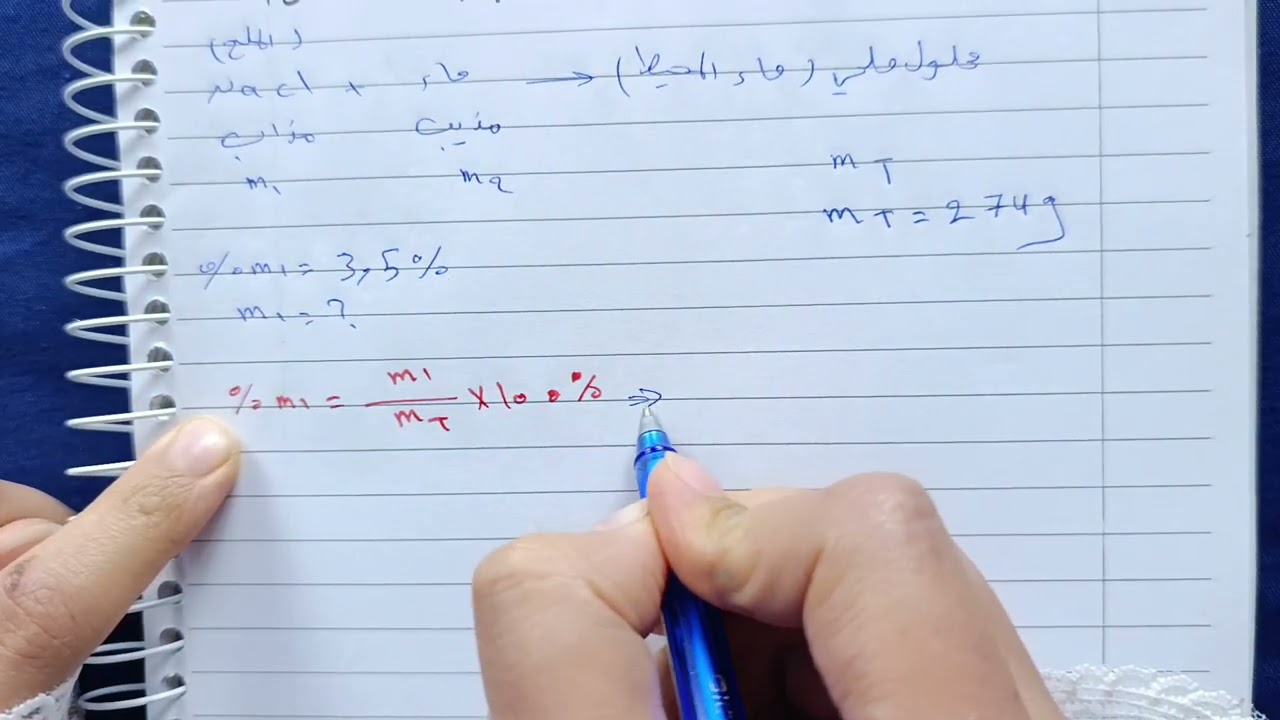 (الملح)
NaCl + ماء → محلول ملحي (ماء المحيط)
مذاب مذيب
m₁ m₂ mT
mT = 274g
%m₁ = 3,5%
m₁ = ?
%m₁ = m₁/mT × 100% ⇒